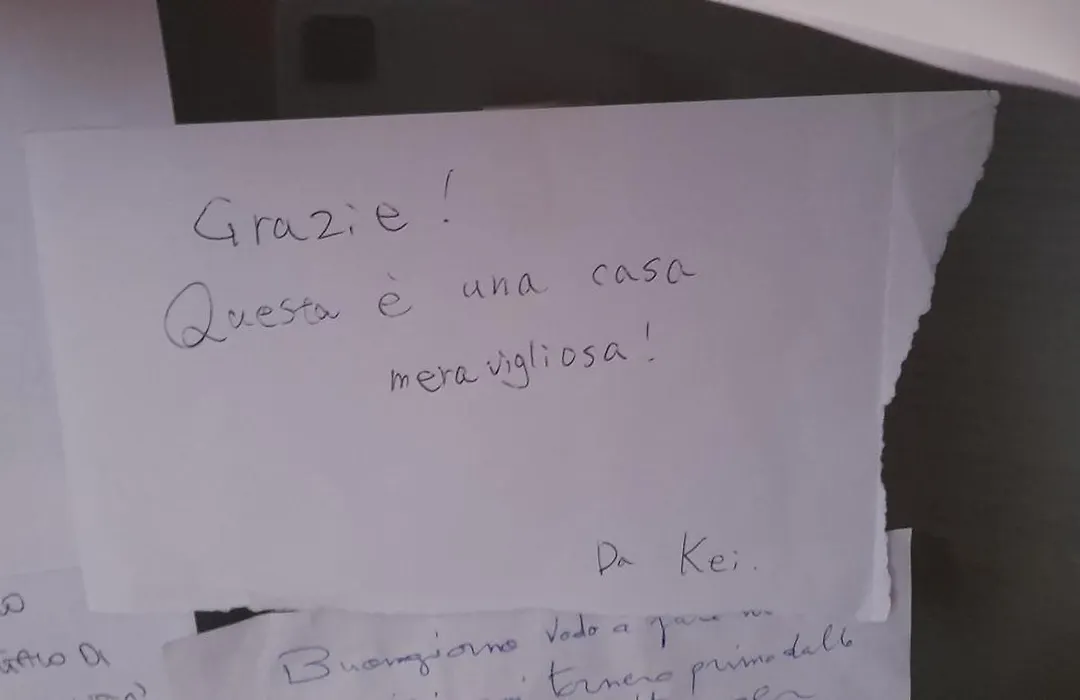 Grazie!
Questa è una casa
meravigliosa!
Da Kei.
GALO DI
Buongiorno Vado a
tornerò prima dall6